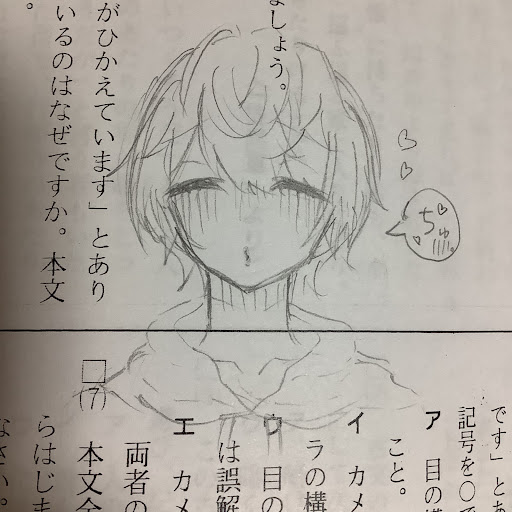 ましょう。
がひかえています」とあり
いるのはなぜですか。本文
。
ちゅ
です」とあ
記号を〇で
ア 目の
こと。
イ カメ
ラの構
ウ 目の
は誤解
エ カメ
両者の
□(7) 本文全
らはじま
なさい。